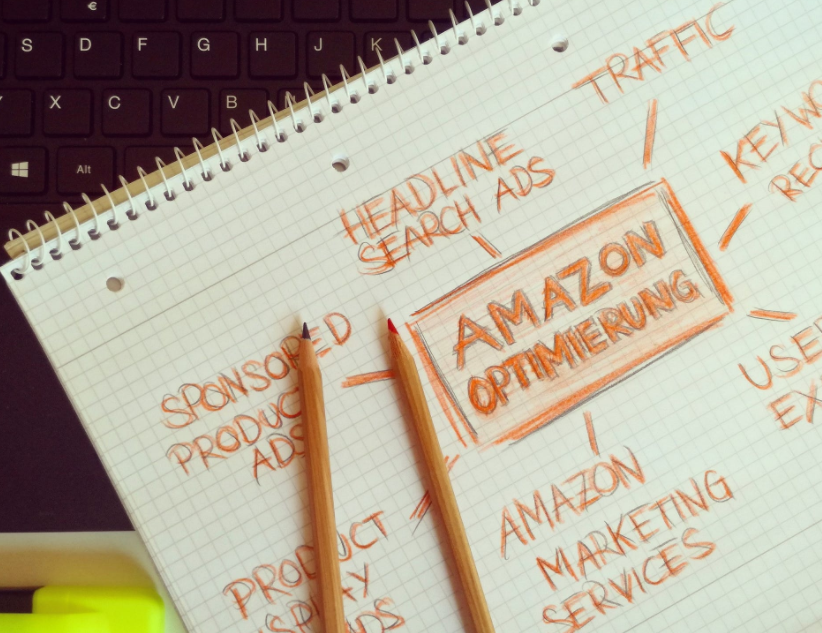 €
S D F G H J K
X C V B
Alt
TRAFFIC
HEADLINE
SEARCH ADS
AMAZON
OPTIMIERUNG
SPONSORED
PRODUCT
ADS
PRODUCT
AMAZON
MARKETING
SERVICES